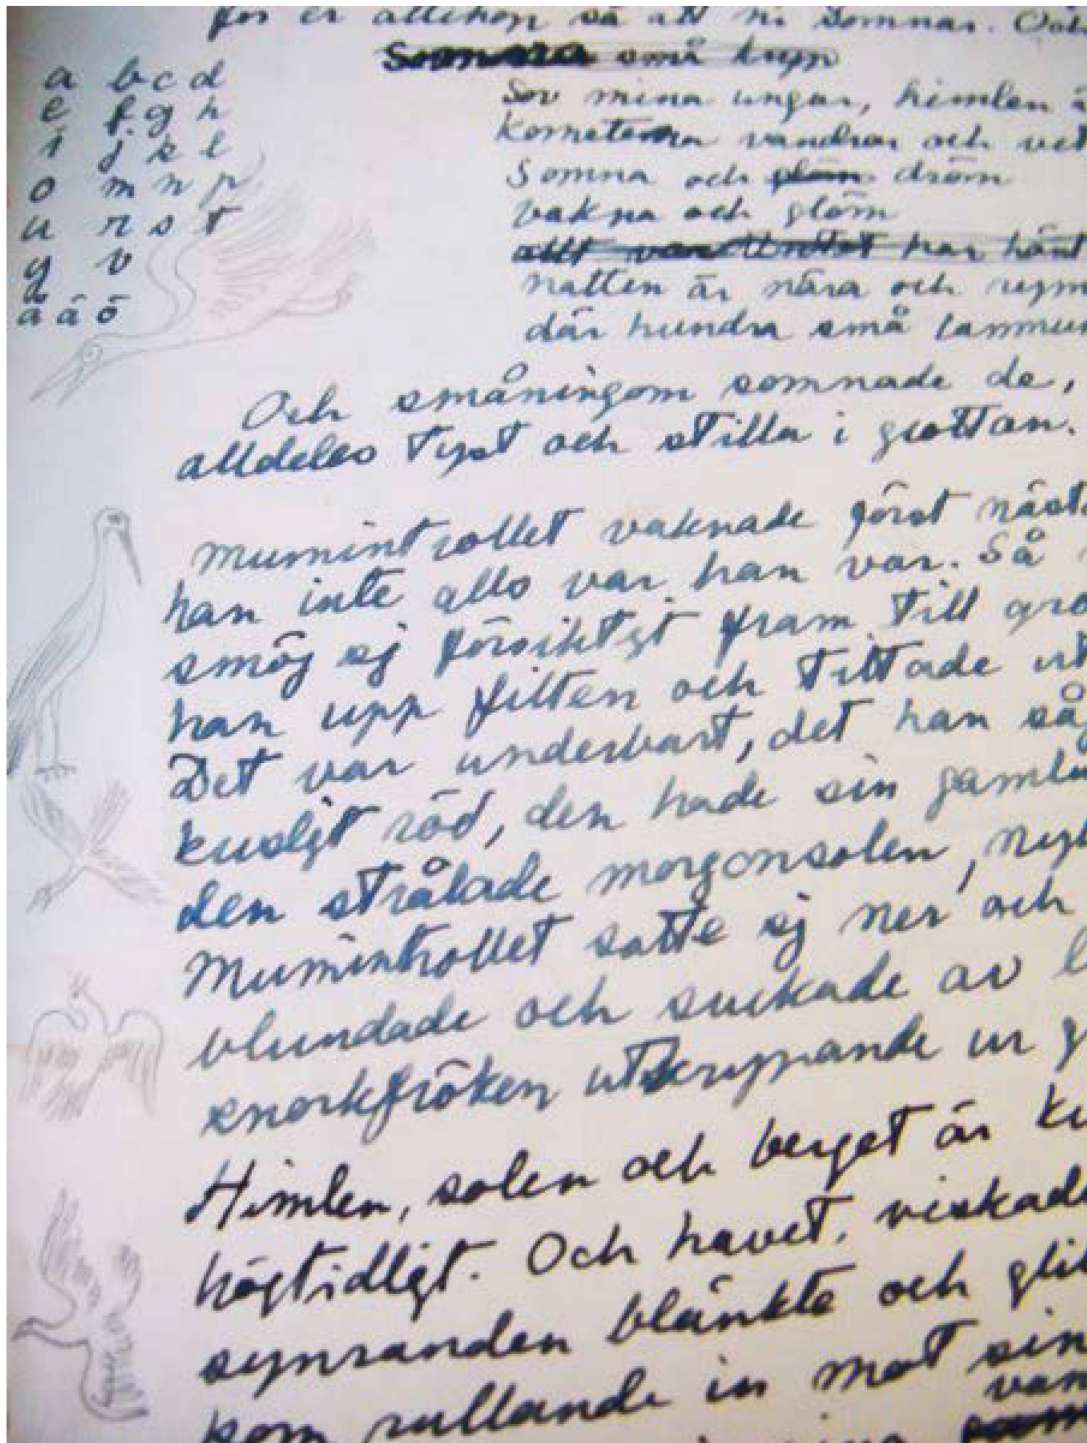 för er allihop så att ni somnar. Och
små kryp
a b c d
e f g h
i j k l
o m n p
u r s t
y v
å ä ö
Sov mina ungar, himlen ä
Kometerna vandrar och vet
Somna och glöm dröm
vakna och glöm
allt var har hänt
natten är nära och rym
där hundra små lammun
Och småningom somnade de,
alldeles tyst och stilla i grottan.
Mumintrollet vaknade först näst
han inte alls var han var. Så
smög sj försiktigt fram till gro
han upp filten och tittade ut
Det var underbart, det han så
kusligt röd, den hade sin gamla
den strålade morgonsolen, ny
Mumintrollet satte sj ner och
blundade och suckade av l
snorkfröken utkrypande ur g
Himlen, solen och berget är
högtidligt. Och havet, viskad
synranden blänkte och gli
kom rullande in mot sin
van